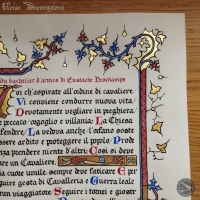 Eloise Decorazioni
du bachelier d'armes di Eustache Deschamps
Voi ch'aspirate all'ordine di cavaliere
Vi conviene condurre nuova vita
Devotamente vegliare in preghiera
peccato, orgoglio e villania: La Chiesa
fendere, La vedova anche, l'orfano soste
essere ardito e proteggere il popolo, Prode
senza prendere niente d'altri; Così si deve
re un Cavaliere.
cuore umile, sempre deve faticare E per
guire gesta di Cavalleria e Guerra leal
ran viaggiatore, Seguire i tornei e giost